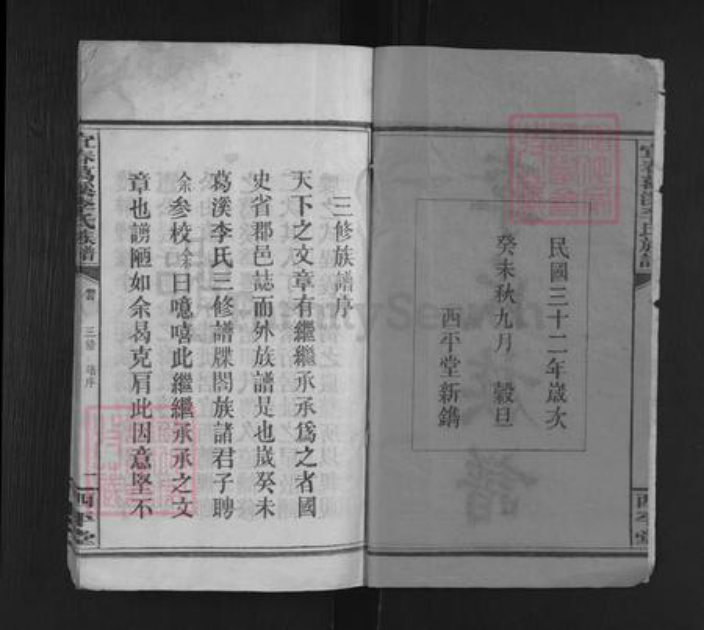 宜春葛溪李氏族譜
西平堂
民國三十二年歲次
癸未秋九月　穀旦
西平堂新鐫
三修族譜序
天下之文章有繼繼承承為之者國
史省郡邑誌而外族譜是也歲癸未
葛溪李氏三修譜牒閤族諸君子聘
余參校余曰噫嘻此繼繼承承之文
章也謭陋如余曷克肩此因意堅不
宜春葛溪李氏族譜
三修　譜序
一
西平堂